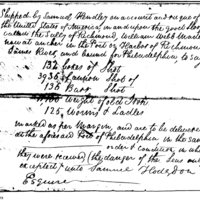 Shipped by Samuel Hanley on account and risque of
the United States of America, in and upon the good sloop
called the Sally of Richmond, William Webb Master
now at anchor in the Port or Harbor of Richmond
James River, and bound for Philadelphia, to say
132 boxes of Shot
3936 Canon Shot of
138 Barr Shot
Wt of old Iron
125 Worms & Ladles
marked as per Margin, and are to be delivered
at the aforesaid Port of Philadelphia in the same
order & condition in which
they were received (the danger of the Seas only
excepted) unto Samuel Hodgdon
Esquire